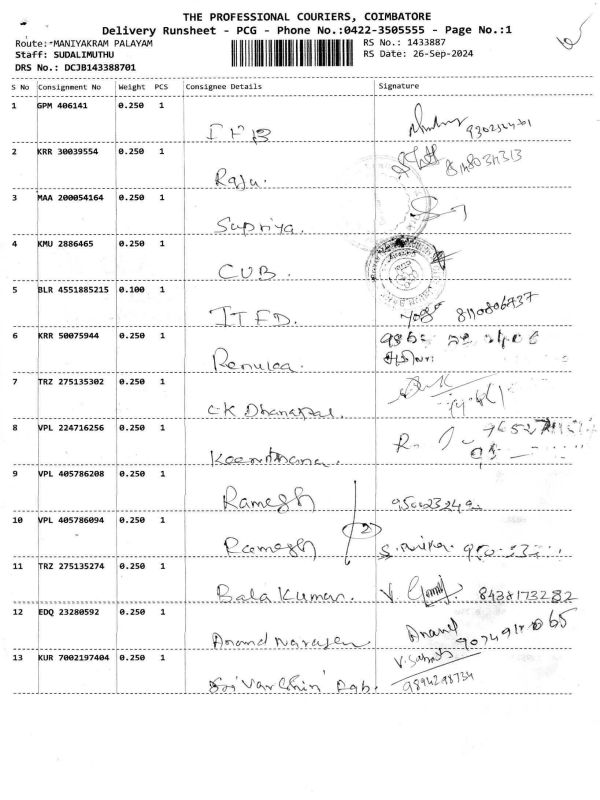 THE PROFESSIONAL COURIERS, COIMBATORE
Delivery Runsheet - PCG - Phone No.:0422-3505555 - Page No.:1
Route:-MANIYAKRAM PALAYAM RS No.: 1433887
Staff: SUDALIMUTHU RS Date: 26-Sep-2024
DRS No.: DCJB143388701
S No Consignment No Weight PCS Consignee Details Signature
1 GPM 406141 0.250 1
2 KRR 30039554 0.250 1
Raju.
3 MAA 200054164 0.250 1
Supriya.
4 KMU 2886465 0.250 1
CUB.
5 BLR 4551885215 0.100 1
ITFD. 8110806737
6 KRR 50075944 0.250 1
Renukaa.
7 TRZ 275135302 0.250 1
C.K Dhanapal.
8 VPL 224716256 0.250 1
Keerthana.
9 VPL 405786208 0.250 1
Ramesh
10 VPL 405786094 0.250 1
Ramesh 2
11 TRZ 275135274 0.250 1
Bala Kumar. V. 8438173282
12 EDQ 23280592 0.250 1
Anand Narayen Anand
13 KUR 7002197404 0.250 1
Sri Varshini 9894298734